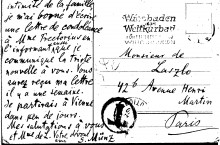 intimité de la famille,
je m'ai borné d'écrire
une lettre de condoléance
à Mme Preetorius en
l'informatique je
communique la triste
nouvelle à vous. Vous
aurez reçu ma lettre
il y a une semaine.
Je partirais à Vienne
dans peu de jours.
Mes salutations à vous
et Mme de L. Votre dévoué
3. Münz
Wiesbaden
Weltkurbad
Monsieur de
Laszlo
42b Avenue Henri
Martin
Paris